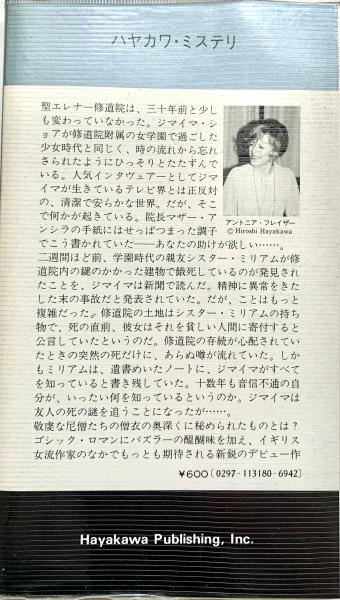 ハヤカワ・ミステリ
聖エレナー修道院は、三十年前と少し
も変わっていなかった。ジマイマ・シ
ョアが修道院附属の女学園で過ごした
少女時代と同じく、時の流れから忘れ
さられたようにひっそりとたたずんで
いる。人気インタヴュアーとしてジマ
イマが生きているテレビ界とは正反対
の、清潔で安らかな世界。だが、そこ
で何かが起きている。院長マザー・アン
シラの手紙にはせっぱつまった調子
でこう書かれていた――あなたの助けが欲しい……。
アントニア・フレイザー
©Hiroshi Hayakawa
二週間ほど前、学園時代の親友シスター・ミリアムが修
道院内の鍵のかかった建物で餓死しているのが発見され
たことを、ジマイマは新聞で読んだ。精神に異常をきた
した末の事故だと発表されていた。だが、ことはもっと
複雑だった。修道院の土地はシスター・ミリアムの持ち
物で、死の直前、彼女はそれを貧しい人間に寄付すると
公言していたというのだ。修道院の存続が心配されてい
たときの突然の死だけに、あらぬ噂が流れていた。しか
もミリアムは、遺書めいたノートに、ジマイマがすべて
を知っていると書き残していた。十数年も音信不通の自
分が、いったい何を知っているというのか。ジマイマは
友人の死の謎を追うことになったが……。
敬虔な尼僧たちの僧衣の奥深くに秘められたものとは？
ゴシック・ロマンにパズラーの醍醐味を加え、イギリス
女流作家のなかでもっとも期待される新鋭のデビュー作
￥600〔0297-113180-6942〕
Hayakawa Publishing, Inc.